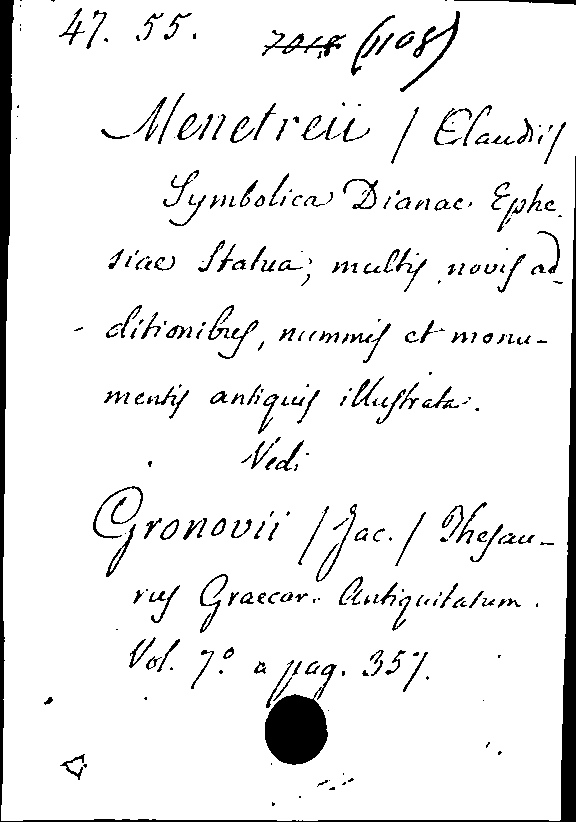 47. 55. 7018 (1108)
Menetreii / Claudii /
Symbolica Dianae Ephe-
siae Statua; multis novis ad-
ditionibus, nummis et monu-
mentis antiquis illustrata.
Vedi
Gronovii / Jac. / Thesau-
rus Graecar. Antiquitatum.
Vol. 7.° a pag. 357.